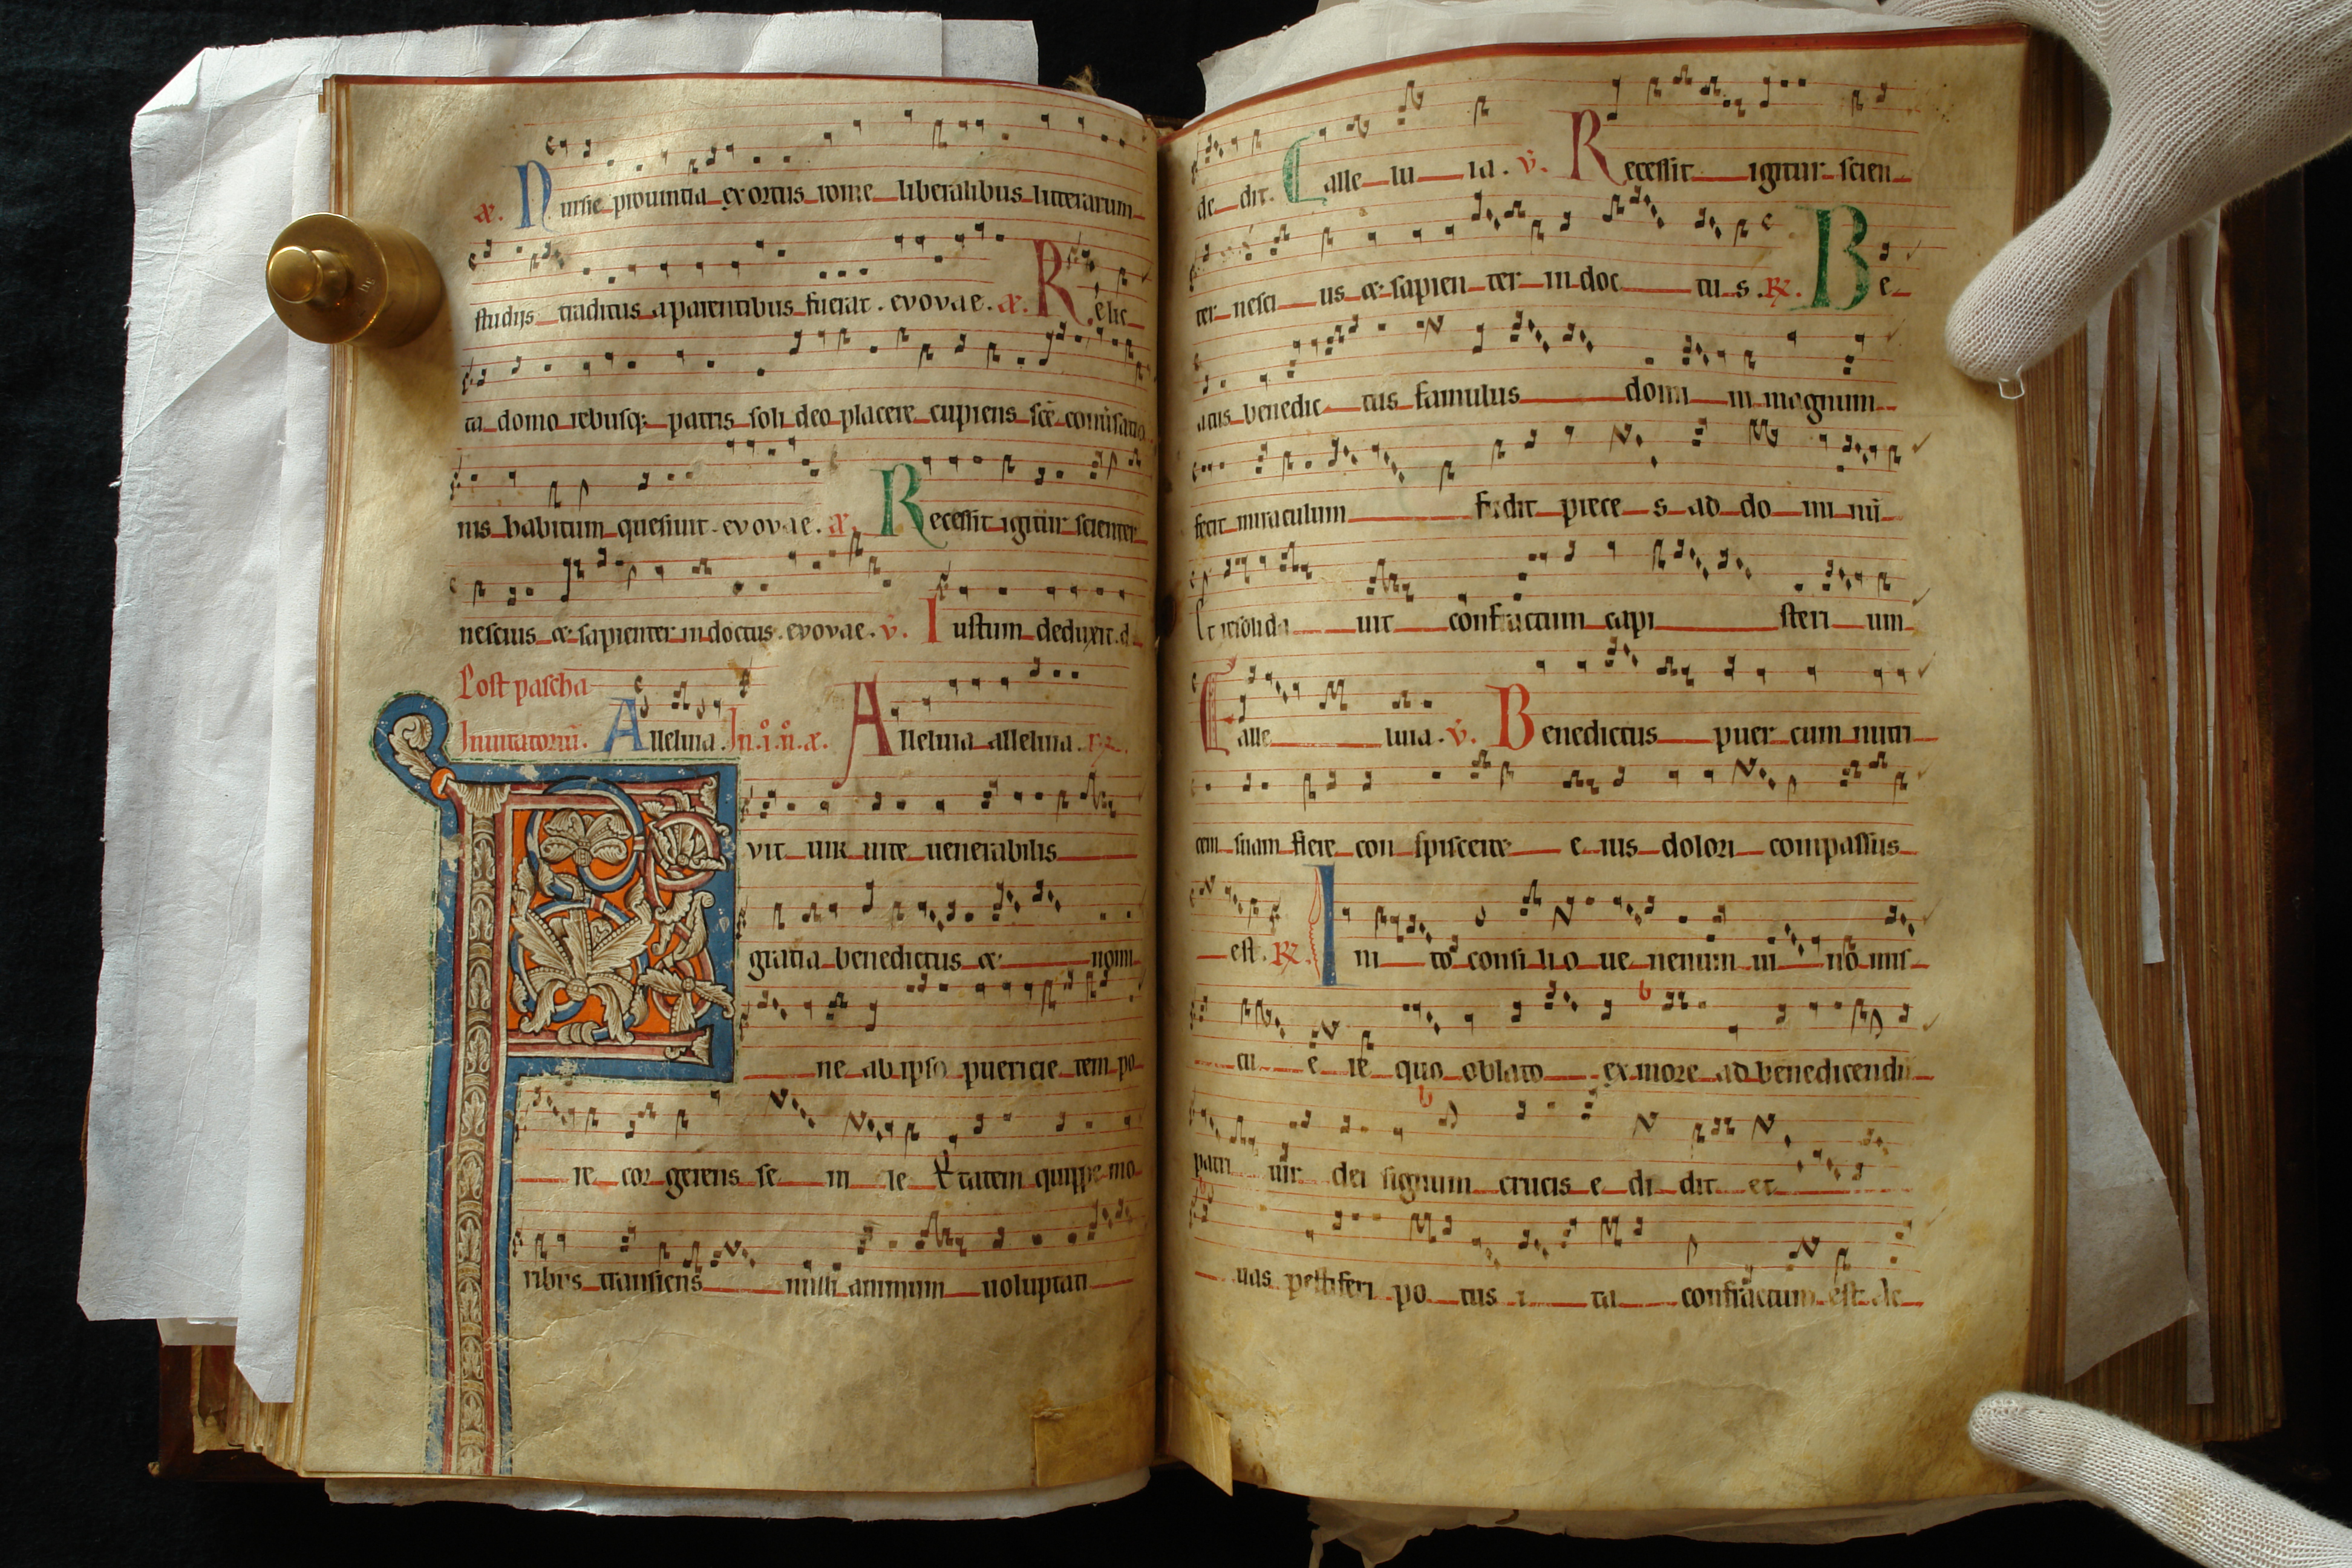 æ. Nursie prouintia exortus rome liberalibus litterarum
studijs traditus a parentibus fuerat. evovae. æ. Relic
ta domo rebusq; patris soli deo placere cupiens scē conūsatio
nis habitum quesiuit. evovae. æ. Recessit igitur scienter
nescius & sapienter indoctus. evovae. v. Iustum deduxit. d
Post pascha
Inuitatoriū. Alleluia. In .i. n. æ. Alleluia alleluia. R.
Fvit uir uite uenerabilis
gratia benedictus & nomi
ne ab ipso puericie tempo
re cor gerens se ni le Etatem quippe mo
ribus transiens nulli animum uoluptati
de dit. alle lu ia. v. Recessit igitur scien
ter nesci us & sapien ter in doc tu s. R. Be
atus benedic tus famulus domi ni magnum
fecit miraculum fudit prece s ad do mi nū
Et resolida uit confractum capi steri um
alle luia. v. Benedictus puer cum nutri
cem suam flere con spiceret e ius dolori compassus
est. R. In i to consi li o ue nenum ui no mis
cu e re quo oblato ex more ad benedicendū
patri uir dei signum crucis e di dit et
uas pestiferi po tus i ta confractum est ac